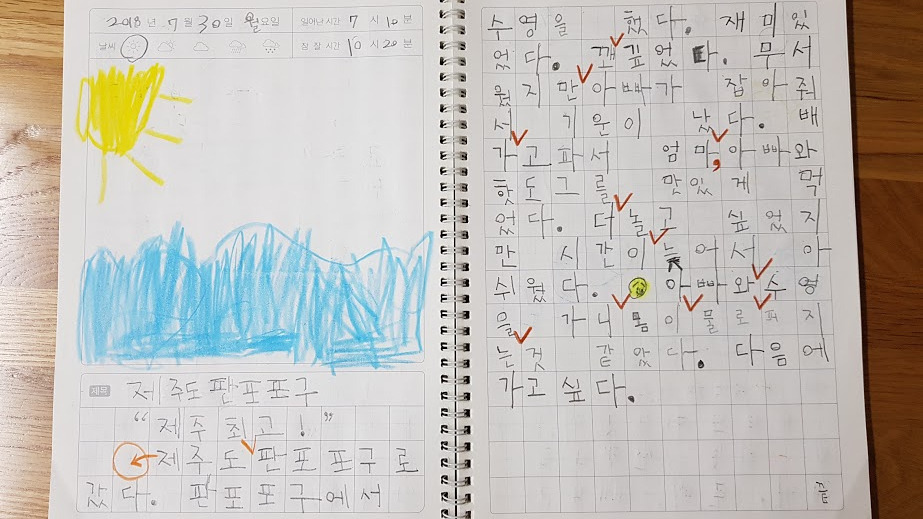 2018년 7월 30일 월요일 일어난 시간 7시 10분
날씨 잠 잘 시간 10시 20분
제목 제주도판포포구
“제주 최고!”
제주도판포포구로
갔다. 판포포구에서
수영을 했다. 재미있
었다. 깨깊었다. 무서
웠지만아빠가 잡아줘
서 기운이 났다. 배
가고파서 엄마,아빠와
핫도그를 맛있게 먹
었다. 더놀고 싶었지
만 시간이늦어서 아
쉬웠다. 아빠와수영
을 가니몸이물로퍼지
는것 같았다. 다음에
가고싶다.
끝